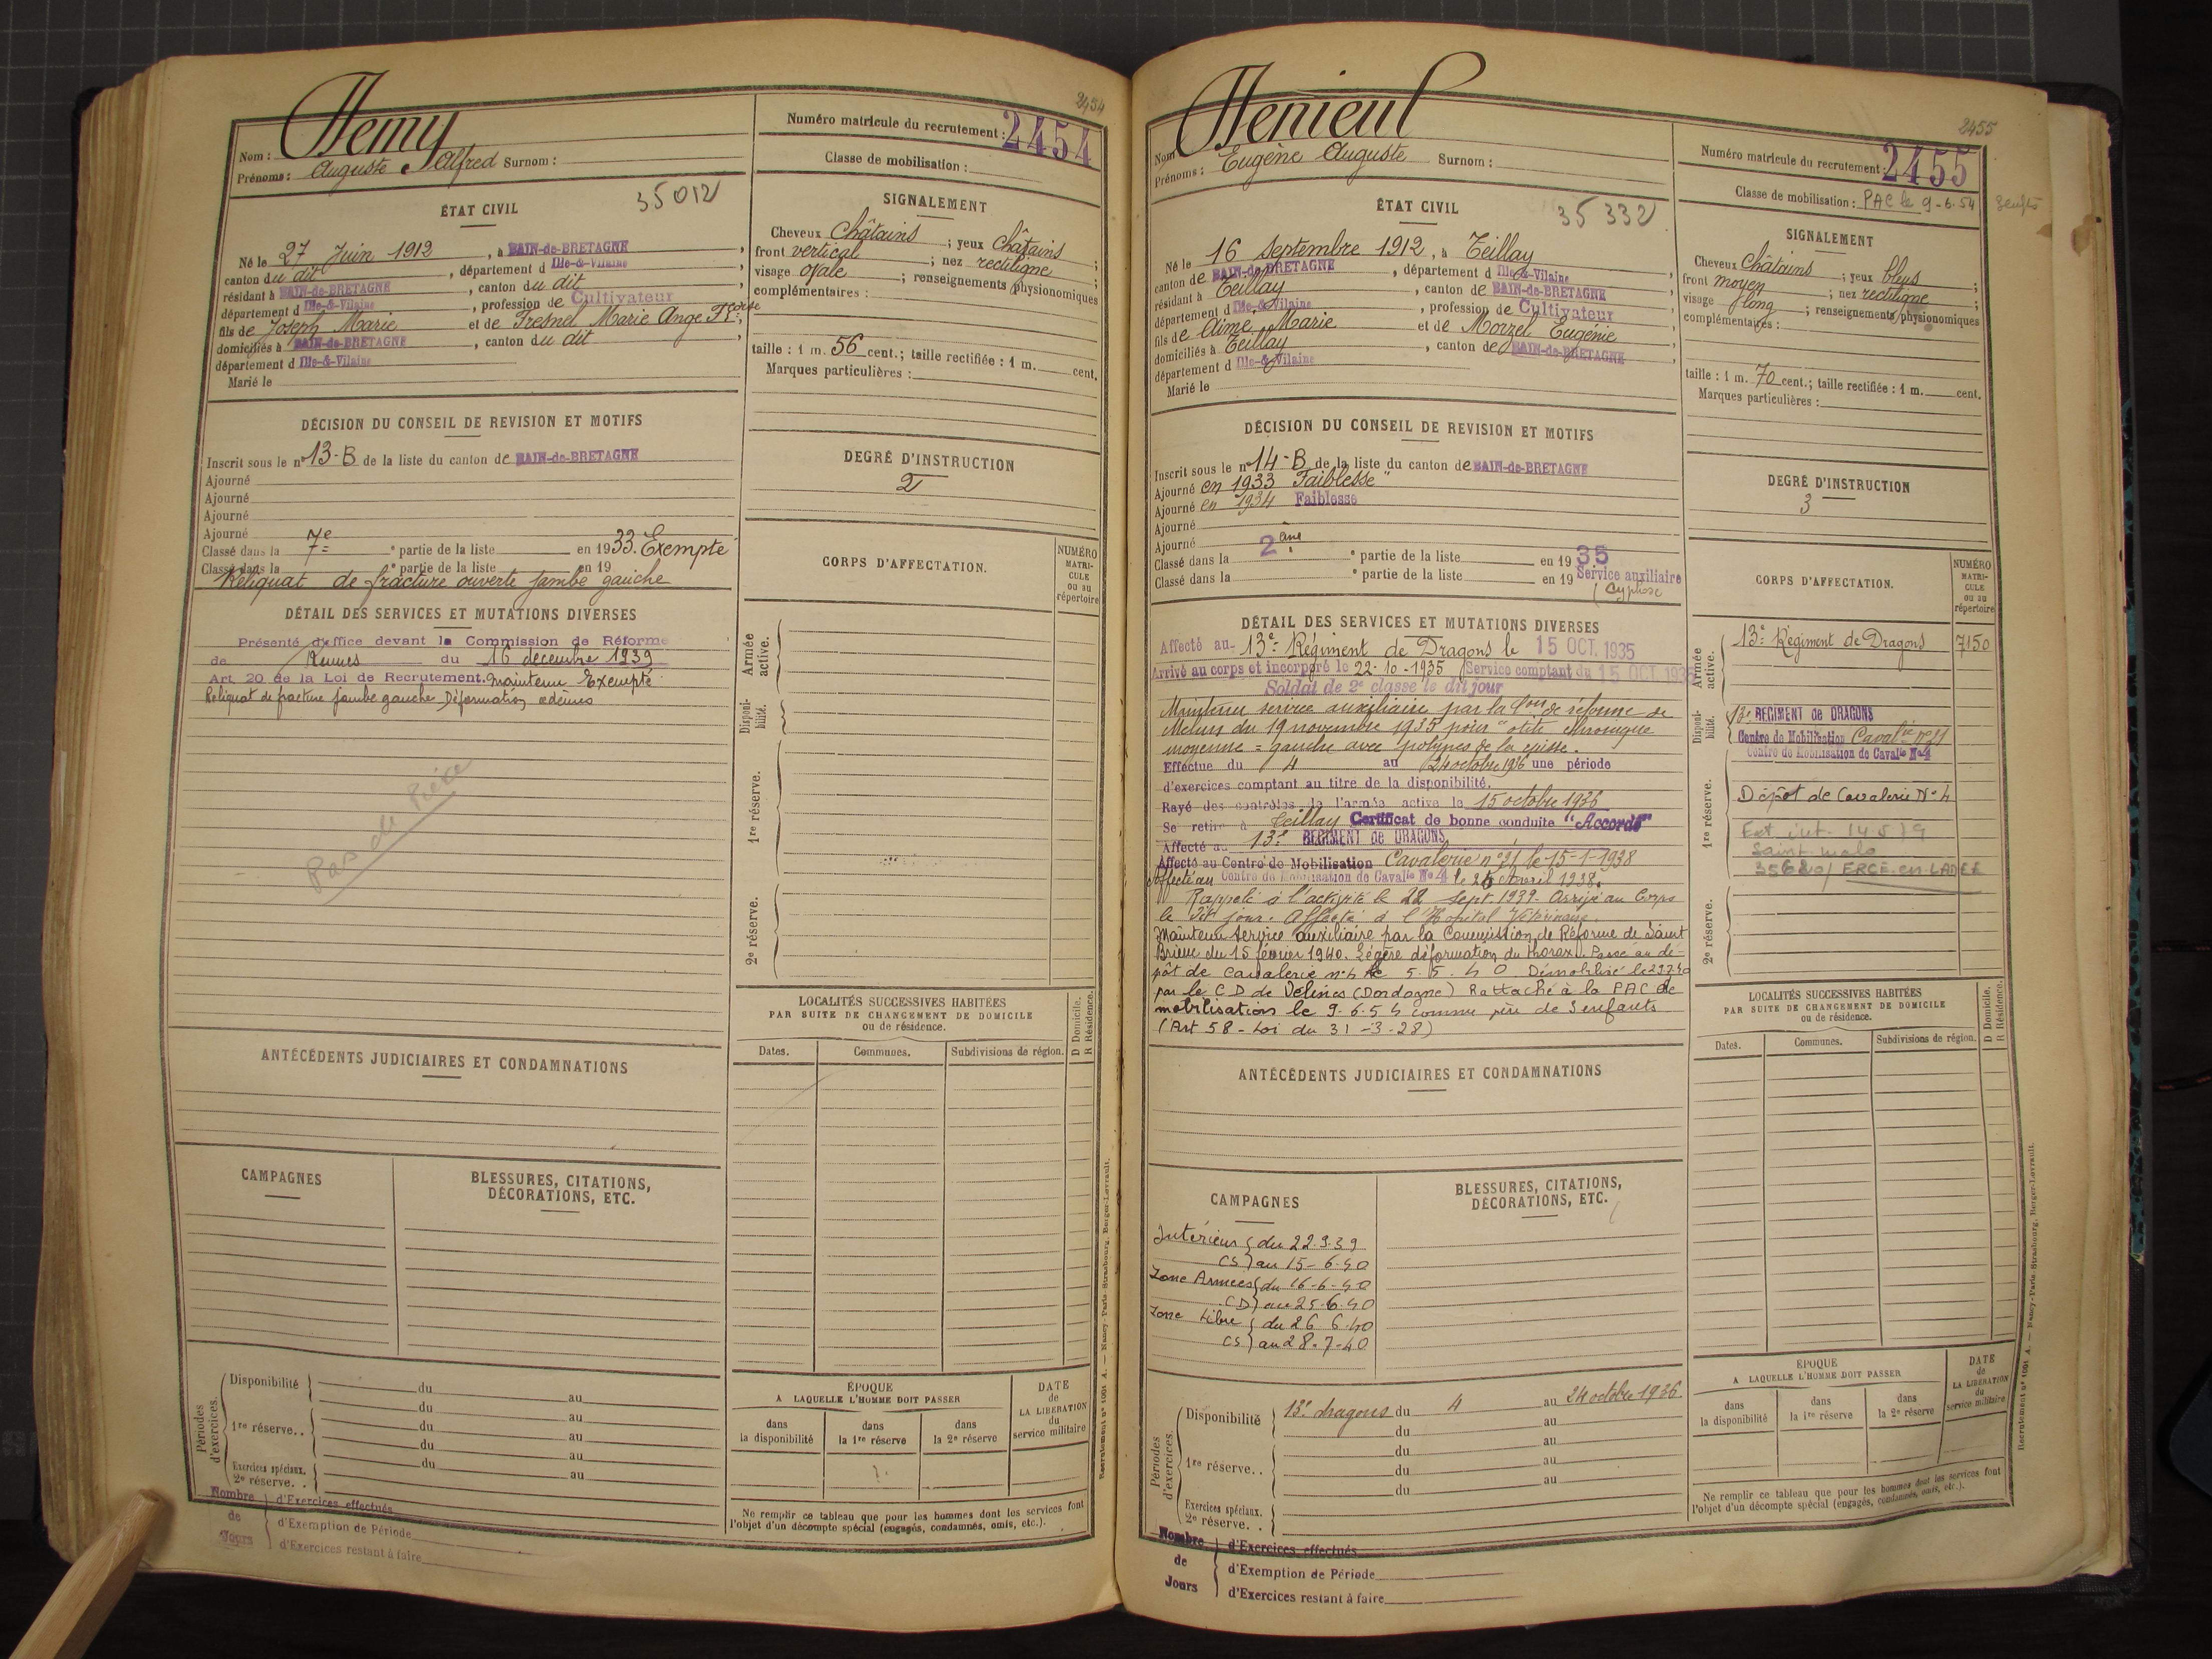 2454
Nom : Hemy
Prénoms : Auguste Alfred Surnom :
Numéro matricule du recrutement : 2454
Classe de mobilisation :
ÉTAT CIVIL
35012
Né le 27 Juin 1912, à BAIN-de-BRETAGNE,
canton du dit, département d Ille-&-Vilaine,
résidant à BAIN-de-BRETAGNE, canton du dit
département d Ille-&-Vilaine, profession de Cultivateur
fils de Joseph Marie et de Fresnel Marie Ange
domiciliés à BAIN-de-BRETAGNE, canton du dit
département d Ille-&-Vilaine
Marié le
SIGNALEMENT
Cheveux Châtains ; yeux Châtains ;
front vertical ; nez rectiligne ;
visage ovale ; renseignements physionomiques
complémentaires :
taille : 1 m. 56 cent.; taille rectifiée : 1 m. cent.
Marques particulières :
DÉCISION DU CONSEIL DE REVISION ET MOTIFS
Inscrit sous le n° 13-B de la liste du canton de BAIN-de-BRETAGNE
Ajourné
Ajourné
Ajourné
Ajourné
Classé dans la 7e ° partie de la liste en 1933. Exempté
Classé dans la ° partie de la liste en 19
Reliquat de fracture ouverte jambe gauche
DEGRÉ D'INSTRUCTION
2
DÉTAIL DES SERVICES ET MUTATIONS DIVERSES
Présenté d'office devant la Commission de Réforme
de Rennes du 16 décembre 1939
Art. 20 de la Loi de Recrutement. Maintenu Exempté
Reliquat de fracture jambe gauche Déformation œdèmes
Pas de Pièce
CORPS D'AFFECTATION.
NUMÉRO MATRI-CULE ou au répertoire
Armée active.
Disponi-bilité.
1re réserve.
2e réserve.
ANTÉCÉDENTS JUDICIAIRES ET CONDAMNATIONS
LOCALITÉS SUCCESSIVES HABITÉES
PAR SUITE DE CHANGEMENT DE DOMICILE
ou de résidence.
D Domicile.
R Résidence.
Dates. Communes. Subdivisions de région.
CAMPAGNES
BLESSURES, CITATIONS,
DÉCORATIONS, ETC.
Périodes d'exercices.
Disponibilité du au
du au
1re réserve.. du au
du au
Exercices spéciaux.
2e réserve. . du au
Nombre de Jours
d'Exercices effectués
d'Exemption de Période
d'Exercices restant à faire
ÉPOQUE
A LAQUELLE L'HOMME DOIT PASSER
dans la disponibilité
dans la 1re réserve
dans la 2e réserve
DATE de LA LIBÉRATION du service militaire
Ne remplir ce tableau que pour les hommes dont les services font
l'objet d'un décompte spécial (engagés, condamnés, omis, etc.).
Recrutement n° 1001 A. — Nancy-Paris-Strasbourg, Berger-Levrault.
2455
Nom Henieul
Prénoms : Eugène Auguste Surnom :
Numéro matricule du recrutement : 2455
Classe de mobilisation : PAC le 9-6-54
ÉTAT CIVIL
35 332
Né le 16 Septembre 1912, à Teillay
canton de BAIN-de-BRETAGNE, département d Ille-&-Vilaine
résidant à Teillay, canton de BAIN-de-BRETAGNE
département d Ille-&-Vilaine, profession de Cultivateur
fils de Aimé Marie et de Morzel Eugénie
domiciliés à Teillay, canton de BAIN-de-BRETAGNE
département d Ille-&-Vilaine
Marié le
SIGNALEMENT
Cheveux Châtains ; yeux bleus ;
front moyen ; nez rectiligne ;
visage long ; renseignements physionomiques
complémentaires :
taille : 1 m. 70 cent.; taille rectifiée : 1 m. cent.
Marques particulières :
DÉCISION DU CONSEIL DE REVISION ET MOTIFS
Inscrit sous le n° 14-B de la liste du canton de BAIN-de-BRETAGNE
Ajourné en 1933 "Faiblesse"
Ajourné en 1934 Faiblesse
Ajourné
Ajourné
Classé dans la 2ème ° partie de la liste en 1935
Classé dans la ° partie de la liste en 19 Service auxiliaire
(Cyphose
DEGRÉ D'INSTRUCTION
3
DÉTAIL DES SERVICES ET MUTATIONS DIVERSES
Affecté au 13e Régiment de Dragons le 15 OCT. 1935
Arrivé au corps et incorporé le 22-10-1935 Service comptant du 15 OCT. 1935
Soldat de 2e classe le dit jour
Maintenu service auxiliaire par la Con de réforme de
Melun du 19 novembre 1935 pour "otite chronique
moyenne = gauche avec polypes de la caisse.
Effectue du 4 au 24 octobre 1936 une période
d'exercices comptant au titre de la disponibilité.
Rayé des contrôles de l'armée active le 15 octobre 1936
Se retire à Teillay Certificat de bonne conduite "Accordé"
Affecté au 13e REGIMENT de DRAGONS
Affecté au Centre de Mobilisation Cavalerie n°31 le 15-1-1938
Affecté au Centre de Mobilisation de Cavalie No 4 le 25 Avril 1938.
Rappelé à l'activité le 22 Sept. 1939. Arrivé au Corps
le dit jour. Affecté à l'Hôpital Vétérinaire.
Maintenu service auxiliaire par la Commission de Réforme de Saint
Brieuc du 15 février 1940. Légère déformation du thorax. Passé au dé-
pôt de cavalerie n°4 le 5.5.40 Démobilisé le
par le C D de Vélines (Dordogne) Rattaché à la PAC de
mobilisation le 9.6.54 comme père de 3 enfants
(Art 58 - Loi du 31-3-28)
CORPS D'AFFECTATION.
NUMÉRO MATRI-CULE ou au répertoire
Armée active.
13e Régiment de Dragons 7150
Disponi-bilité.
13e REGIMENT de DRAGONS
Centre de Mobilisation Cavalie n°31
Centre de Mobilisation de Cavalie No 4
1re réserve.
Dépôt de Cavalerie N° 4
Saint-Malo
ERCE-en-LAMEE
2e réserve.
ANTÉCÉDENTS JUDICIAIRES ET CONDAMNATIONS
LOCALITÉS SUCCESSIVES HABITÉES
PAR SUITE DE CHANGEMENT DE DOMICILE
ou de résidence.
D Domicile.
R Résidence.
Dates. Communes. Subdivisions de région.
CAMPAGNES
Intérieur { du 22.9.39
CS } au 15-6-40
Zone Armées { du 16-6-40
CD } au 25.6.40
Zone Libre { du 26 6.40
CS } au 28-7-40
BLESSURES, CITATIONS,
DÉCORATIONS, ETC.
Périodes d'exercices.
Disponibilité 13e dragons du 4 au 24 octobre 1936
du au
1re réserve.. du au
du au
Exercices spéciaux.
2e réserve. . du au
Nombre de Jours
d'Exercices effectués
d'Exemption de Période
d'Exercices restant à faire
ÉPOQUE
A LAQUELLE L'HOMME DOIT PASSER
dans la disponibilité
dans la 1re réserve
dans la 2e réserve
DATE de LA LIBÉRATION du service militaire
Ne remplir ce tableau que pour les hommes dont les services font
l'objet d'un décompte spécial (engagés, condamnés, omis, etc.).
Recrutement n° 1001 A. — Nancy-Paris-Strasbourg, Berger-Levrault.